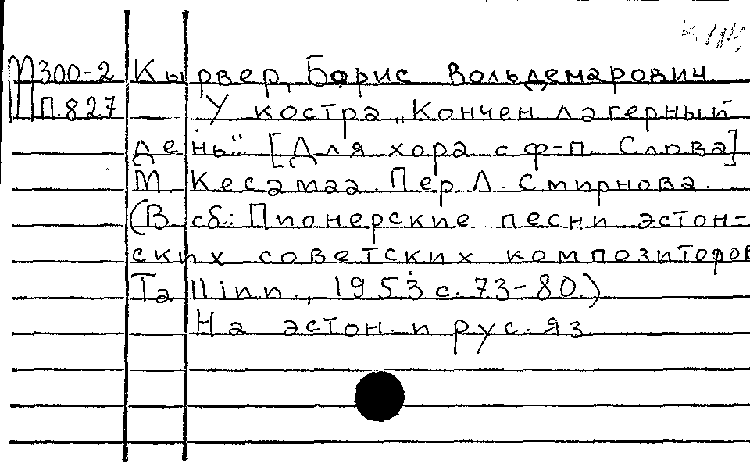 М300-2 Кырвер, Борис Вольдемарович
П.827 У костра „Кончен лагерный
день“ [Для хора с ф-п. Слова]
М. Кесамаа. Пер. Л. Смирнова.
(В сб: Пионерские песни эстон-
ских советских композиторов
Tallinn, 1953 с. 73-80.)
На эстон. и рус. яз